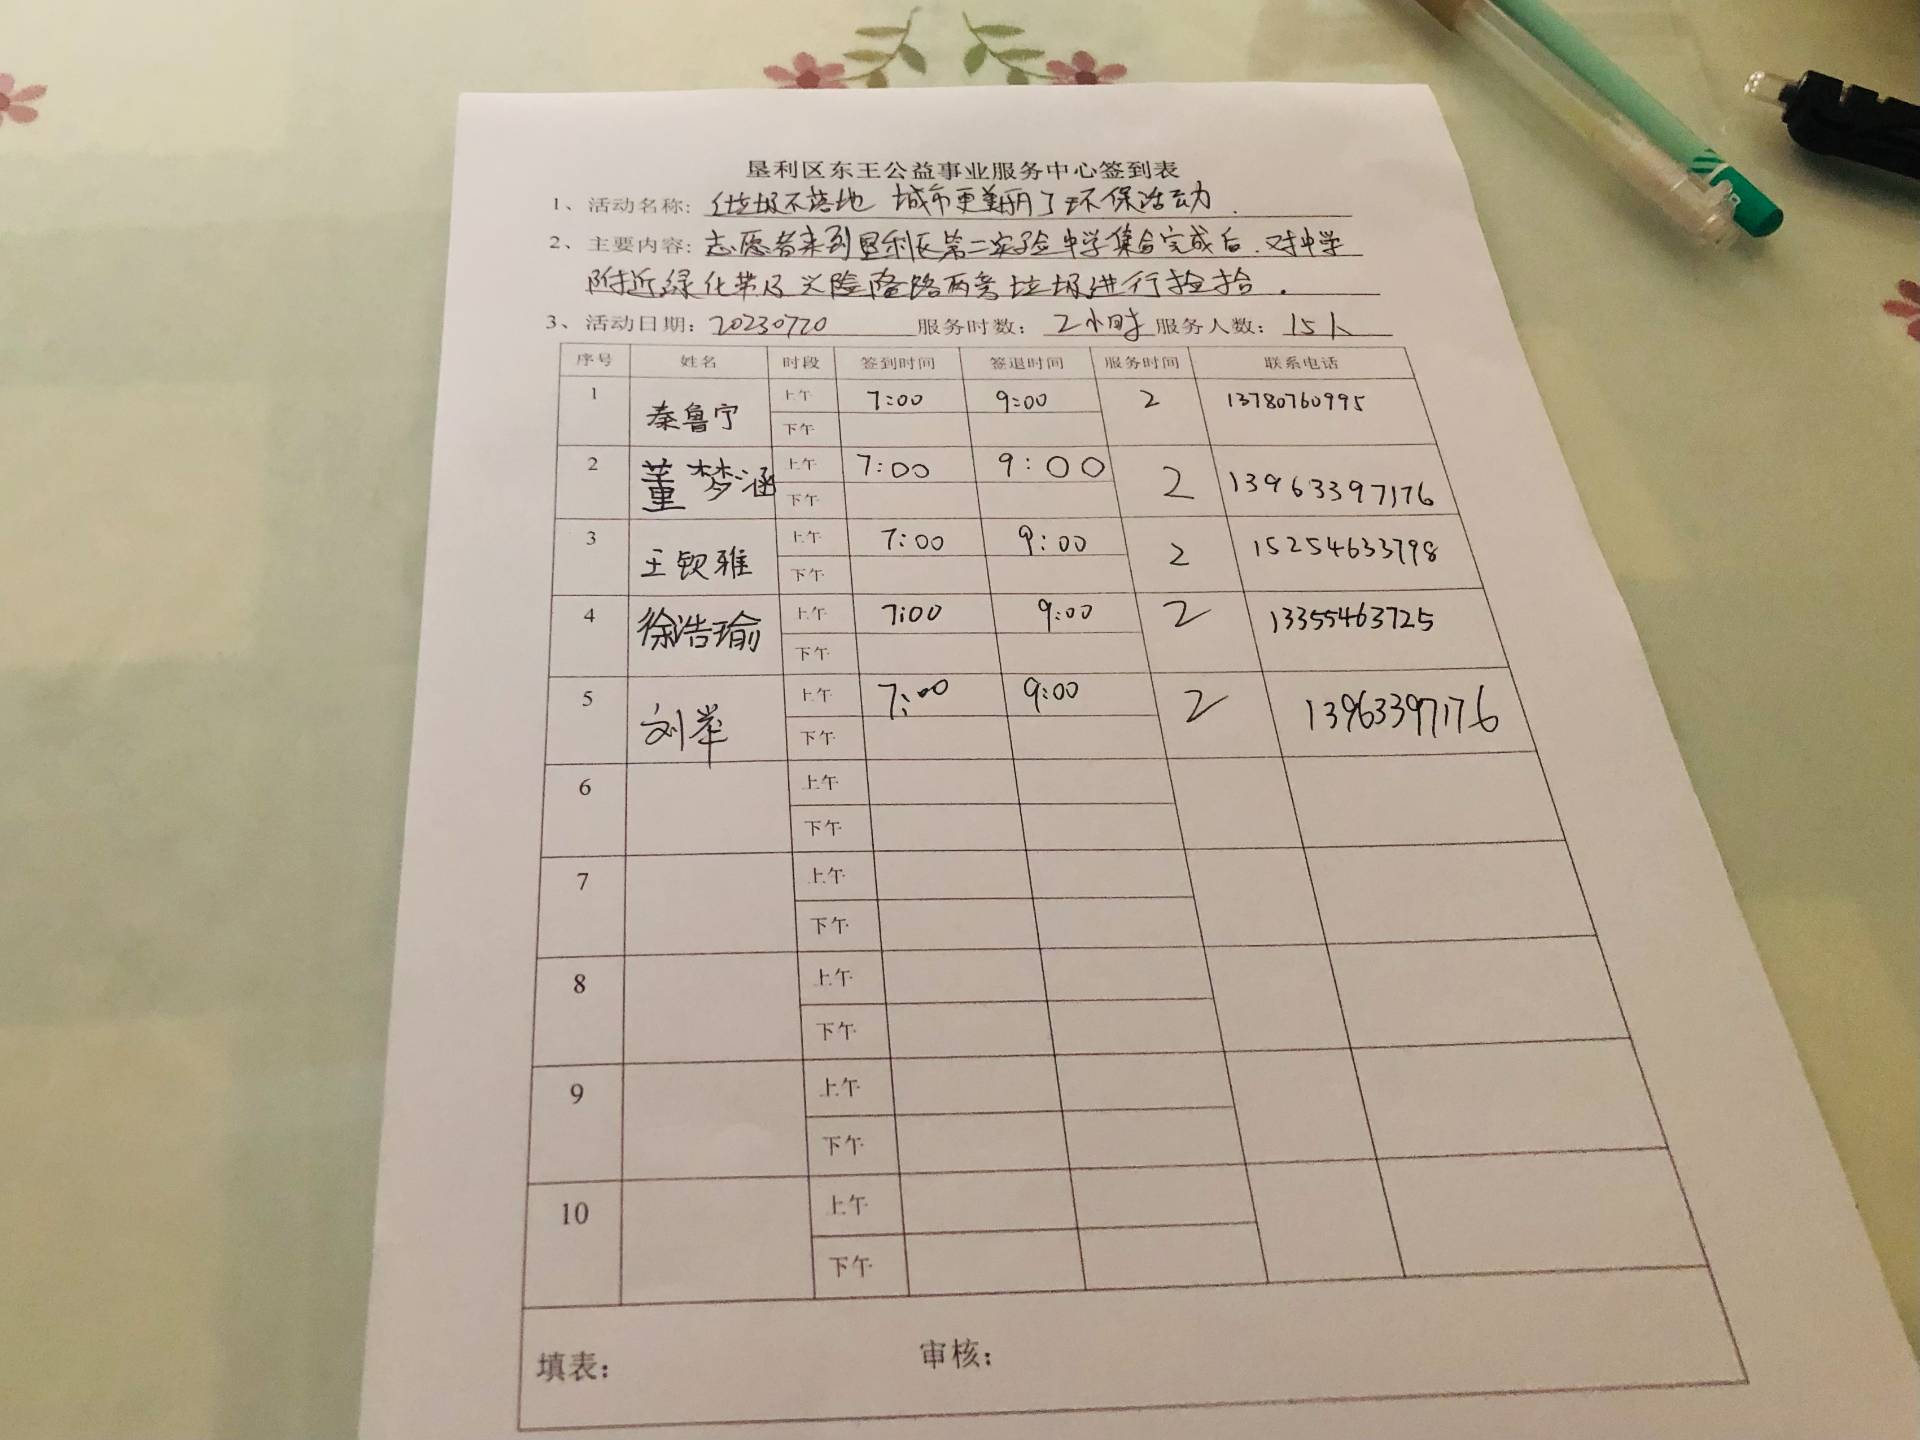 垦利区东王公益事业服务中心签到表
1、活动名称：《垃圾不落地 城市更美丽》环保活动.
2、主要内容：志愿者来到垦利区第二实验中学集合完成后.对中学
附近绿化带及兴隆路两旁垃圾进行捡拾.
3、活动日期：20230720 服务时数：2小时 服务人数：15人
序号 姓名 时段 签到时间 签退时间 服务时间 联系电话
1 秦鲁宁 上午 7:00 9:00 2 13780760995
下午
2 董梦涵 上午 7:00 9:00 2 13963397176
下午
3 王钦雅 上午 7:00 9:00 2 15254633798
下午
4 徐浩瑜 上午 7:00 9:00 2 13355463725
下午
5 刘举 上午 7:00 9:00 2 13963397176
下午
6 上午
下午
7 上午
下午
8 上午
下午
9 上午
下午
10 上午
下午
填表： 审核：